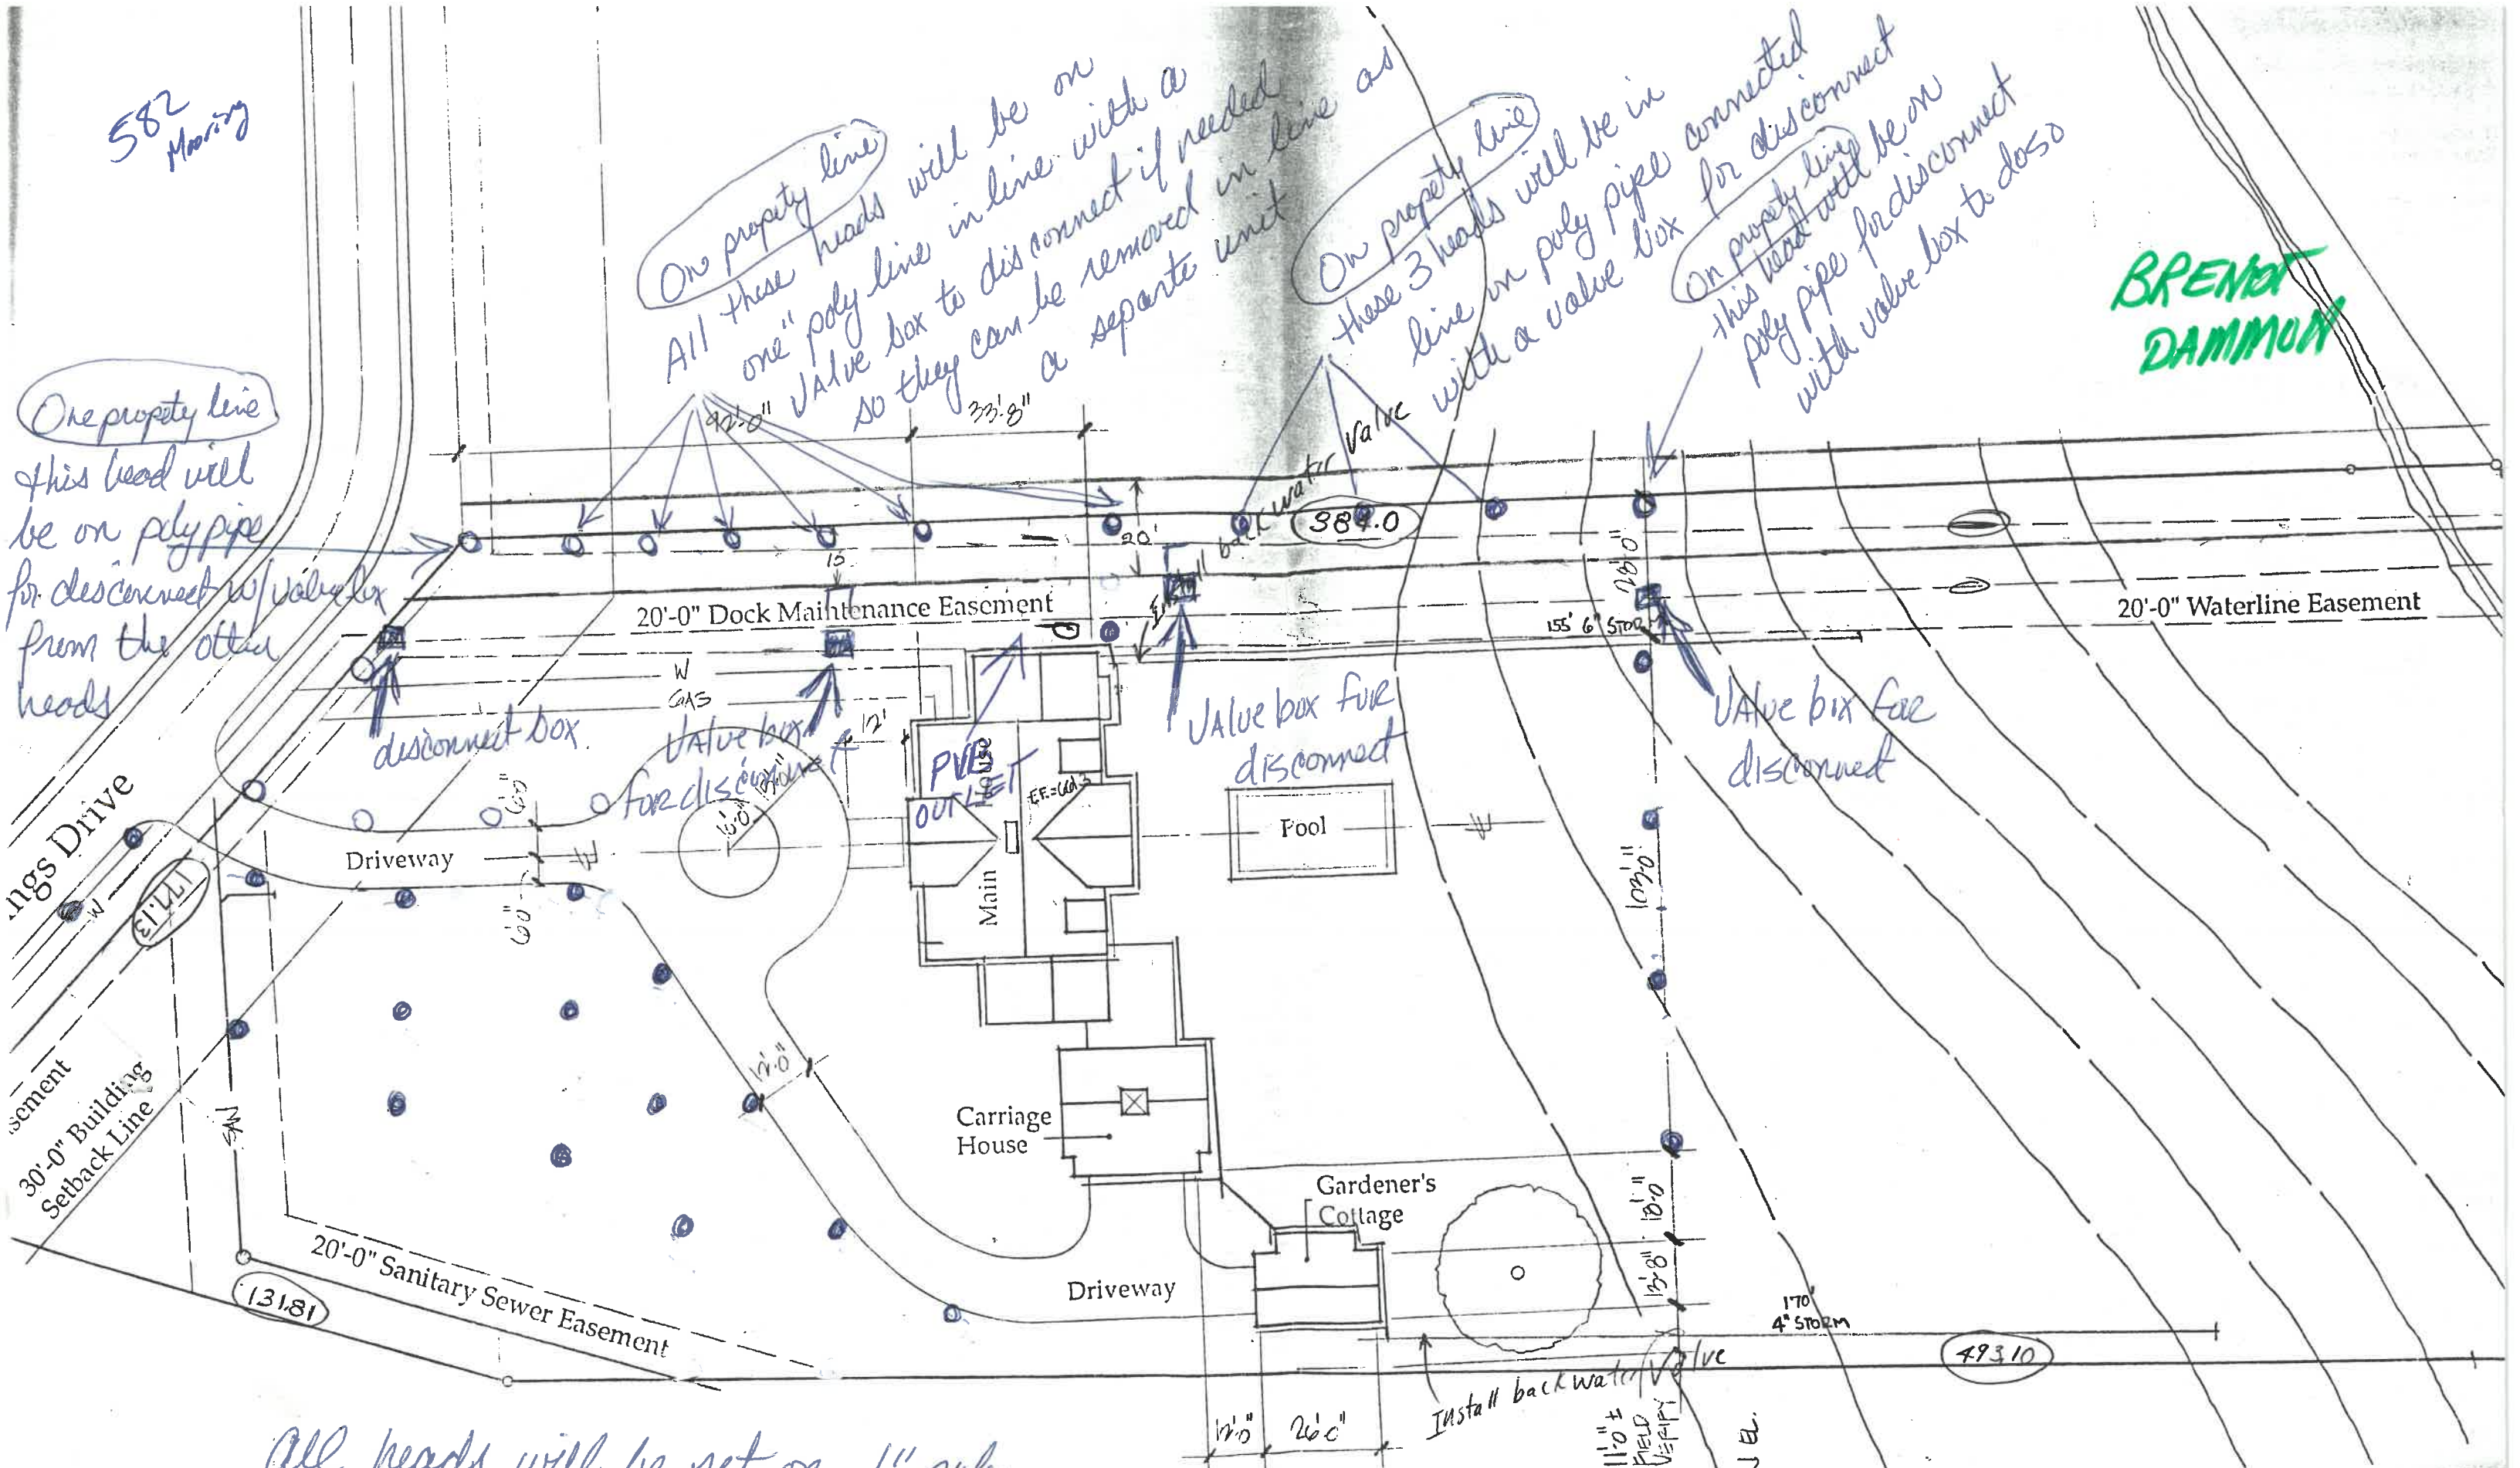 582
Mooring
On propety line
All these heads will be on
one" poly line in line with a
VAlve box to disconnect if needed
so they can be removed in line as
a separte unit
On propety line
these 3 heads will be in
line on poly pipe connected
with a valve box for disconnect
On propety line
this head will be on
poly pipe for disconnect
with valve box to do so
BRENDT
DAMMON
One propety line
this head will
be on poly pipe
for disconnect w/valve box
from the other
heads
92'-0"
33'-8"
back water Valve
384.0
20'
15'
28'-0"
20'-0" Dock Maintenance Easement
155' 6" STORM
20'-0" Waterline Easement
W
GAS
12'
disconnect box.
VAlve box
for disconnect
PVC
OUTLET
VAlve box FUR
disconnect
VAlve box FOR
disconnect
ngs Drive
Driveway
6'-0"
6'-0"
16'-0"
Main House
Pool
103'-0"
W
177.13
12'-0"
sement
30'-0" Building
Setback Line
SAN
Carriage
House
Gardener's
Cottage
18'-0"
13'-8"
20'-0" Sanitary Sewer Easement
131.81
Driveway
170'
4" STORM
493.10
Install backwater Valve
12'-0"
26'-0"
11'-0" ±
FIELD
VERIFY
All heads will be set on 1" poly